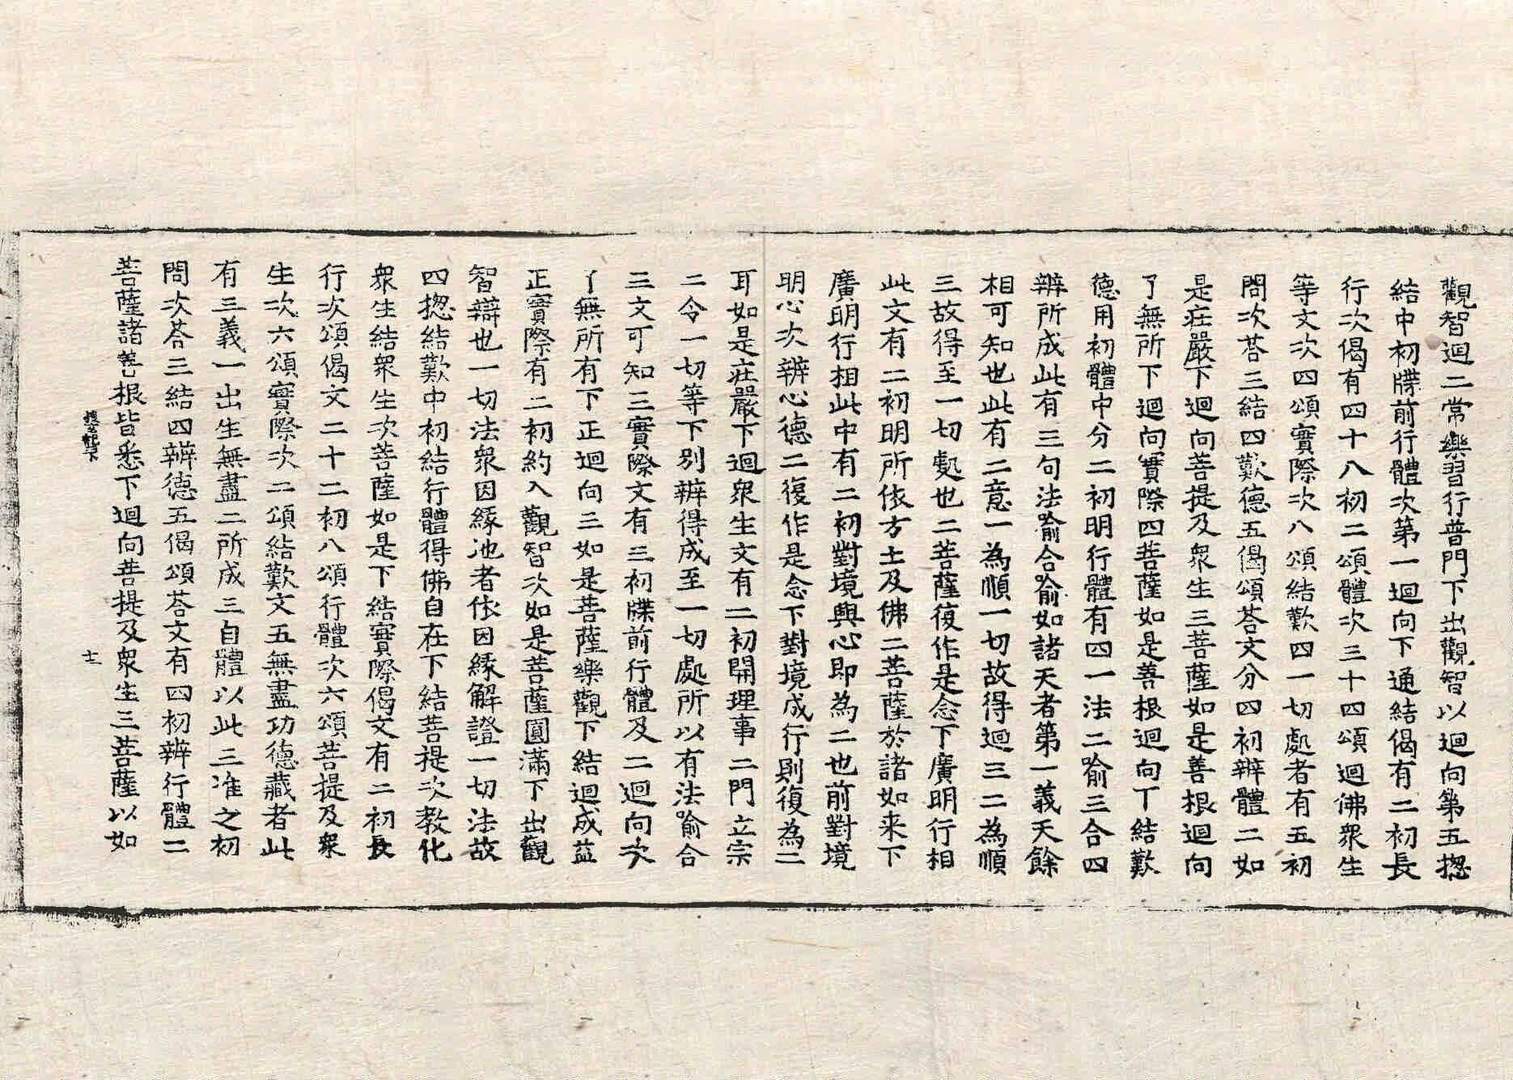 觀智迴二常樂習行普門下出觀智以迴向第五揔
結中初牒前行體次第一迴向下通結偈有二初長
行次偈有四十八初二頌體次三十四頌迴佛衆生
等文次四頌實際次八頌結歎四一切處者有五初
問次荅三結四歎德五偈頌荅文分四初辨體二如
是庄嚴下迴向菩提及衆生三菩薩如是善根迴向
了無所下迴向實際四菩薩如是善根迴向丅結歎
德用初體中分二初明行體有四一法二喻三合四
辨所成此有三句法喻合喻如諸天者第一義天餘
相可知也此有二意一為順一切故得迴三二為順
三故得至一切處也二菩薩復作是念下廣明行相
此文有二初明所依方土及佛二菩薩於諸如来下
廣明行相此中有二初對境與心即為二也前對境
明心次辨心德二復作是念下對境成行則復為二
耳如是庄嚴下迴衆生文有二初開理事二門立宗
二令一切等下別辨得成至一切處所以有法喻合
三文可知三實際文有三初牒前行體及二迴向次
了無所有下正迴向三如是菩薩樂觀下結迴成益
正實際有二初約入觀智次如是菩薩圓滿下出觀
智辯也一切法衆因緣池者依因緣解證一切法故
四揔結歎中初結行體得佛自在下結菩提次教化
衆生結衆生次菩薩如是下結實際偈文有二初長
行次頌偈文二十二初八頌行體次六頌菩提及衆
生次六頌實際次二頌結歎文五無盡功德藏者此
有三義一出生無盡二所成三自體以此三准之初
問次荅三結四辨德五偈頌荅文有四初辨行體二
菩薩諸善根皆悉下迴向菩提及衆生三菩薩以如
十一